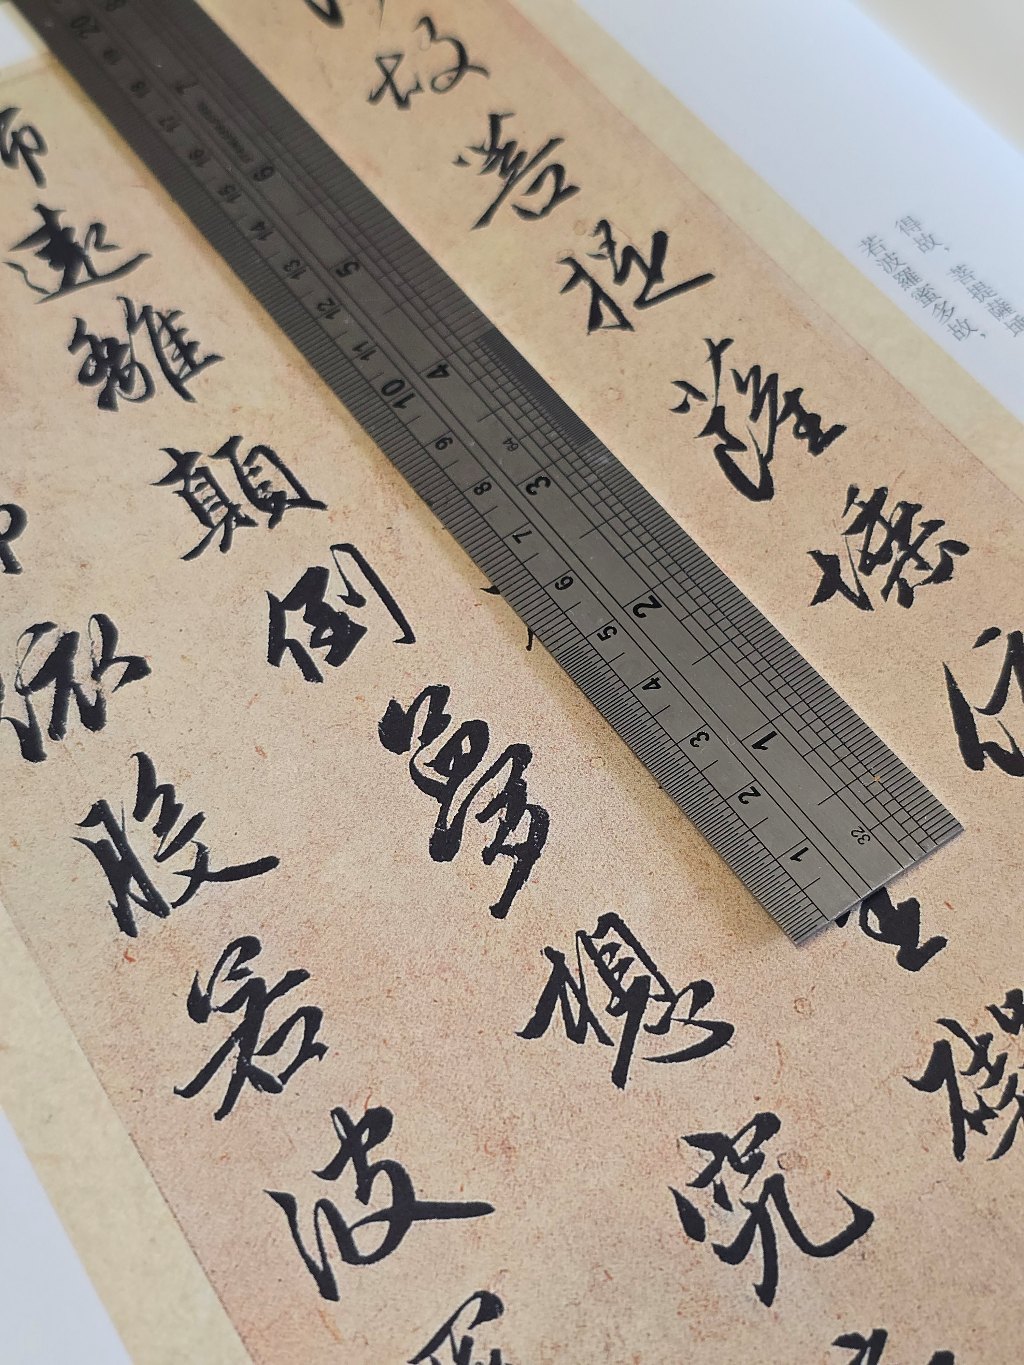 得故，菩提薩
若波羅蜜多故，
故菩提薩埵依
礙
遠離顛倒夢想究
依般若波
32
64
1 2 3 4 5 6 7
1 2 3 4 5 6 7 8 9 10 11 12 13 14 15 16 17 18 19 20